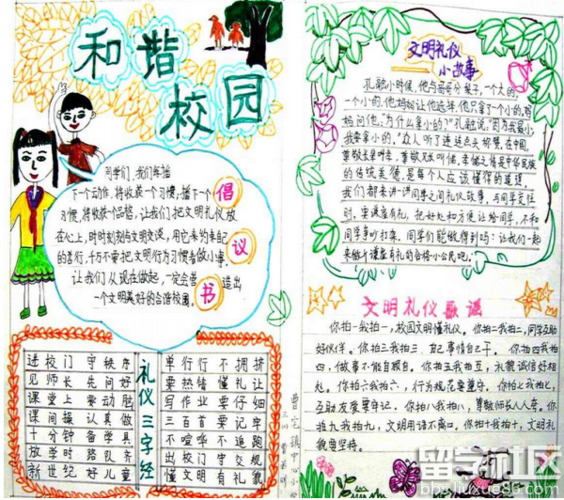 和谐
校园
同学们,我们每播
下一个动作,将收获一个习惯;播下一个
习惯,将收获一个品格,让我们把文明礼仪放
在心上,时时刻刻与文明交谈,用它来约束自己
的言行,千万不要把文明行为习惯看做小事。
让我们从现在做起,一定会营造出
一个文明美好的和谐校园。
倡
议
书
礼仪三字经
进校门 守秩序
见师长 先问好
课堂上 要动脑
课间操 认真做
十分钟 备学具
放学时 路队齐
新世纪 好儿童
单行行 不拥挤
要热情 懂礼让
写作业 要仔细
三百首 要记牢
不喧呼 不追跑
出校门 守交规
懂文明 有礼貌
文明礼仪
小故事
孔融小时候,他与哥哥分梨子,一个大的,
一个小的,他妈妈让他选择,他只拿了一个小的,妈
妈问他:为什么拿小的?"孔融说:"因为我最小,
我要拿小的。"众人听了连连点头称赞,在中国,
的传统美德,是每个人应该懂得的道理。
我们都来讲一讲同学之间礼仪故事,与同学交往
时,要谦虚有礼,把好处和方便让给同学,不和
同学争吵打架。同学们能做得到吗?让我们一起
来做个谦虚有礼的合格小公民吧。
文明礼仪歌谣
你拍一我拍一,校园文明懂礼仪。你拍二我拍二,同学互助
好伙伴。你拍三我拍三,自己事情自己干。你拍四我拍
四,做事不能自顾自。你拍五我拍五,
你拍六我拍六,行为规范要遵守。你拍七我拍七,
互助友爱要牢记。你拍八我拍八,尊敬师长人人夸。你拍
九我拍九,文明用语不离口。你拍十我拍十,文明礼
貌要坚持。
曹屯镇中心小学
留学社区
bbs.liuxue86.com